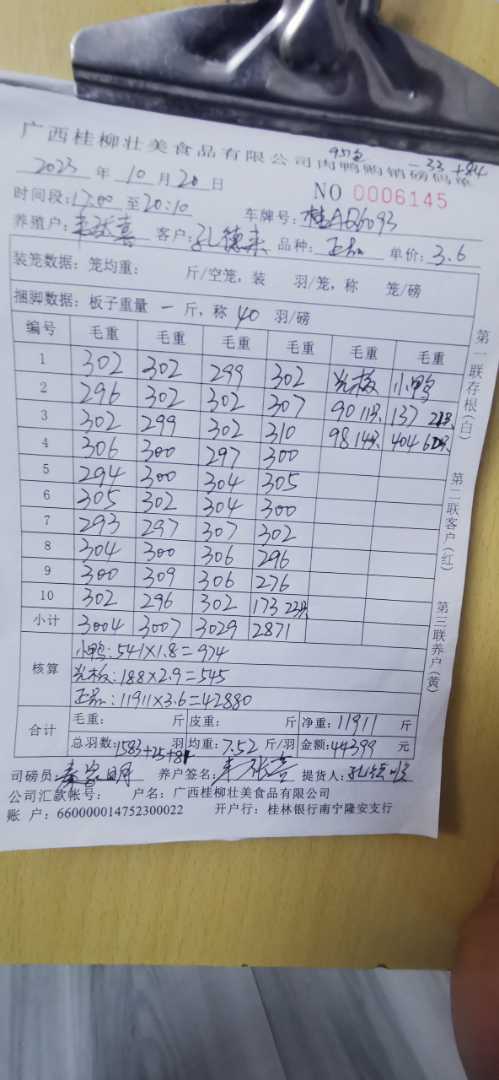 广西桂柳壮美食品有限公司肉鸭购销磅码单
-33 +84
2023 年 10 月 20 日 NO 0006145
时间段:17:00 至 20:10 车牌号:桂A
养殖户: 客户:孔德来 品种:正品 单价:3.6
装笼数据:笼均重: 斤/空笼,装 羽/笼,称 笼/磅
捆脚数据:板子重量 一 斤,称 40 羽/磅
编号 毛重 毛重 毛重 毛重 毛重 毛重
1 302 302 299 302 光板 小鸭
2 296 302 302 307 90 11只 137
3 302 299 302 310 98 14只 404
4 306 300 297 300
5 294 300 304 305
6 305 302 304 300
7 293 297 307 302
8 304 300 306 296
9 300 309 306 276
10 302 296 302 173 22只
小计 3004 3007 3029 2871
核算
小鸭:541×1.8=974
光板:188×2.9=545
正品:11911×3.6=42880
合计 毛重: 斤 皮重: 斤 净重:11911 斤
总羽数:1583+25+81 羽 均重:7.52 斤/羽 金额:44399 元
司磅员: 养户签名: 提货人:
公司汇款帐号: 户名:广西桂柳壮美食品有限公司
账 户:660000014752300022 开户行:桂林银行南宁隆安支行
第一联存根(白)
第二联客户(红)
第三联养户(黄)